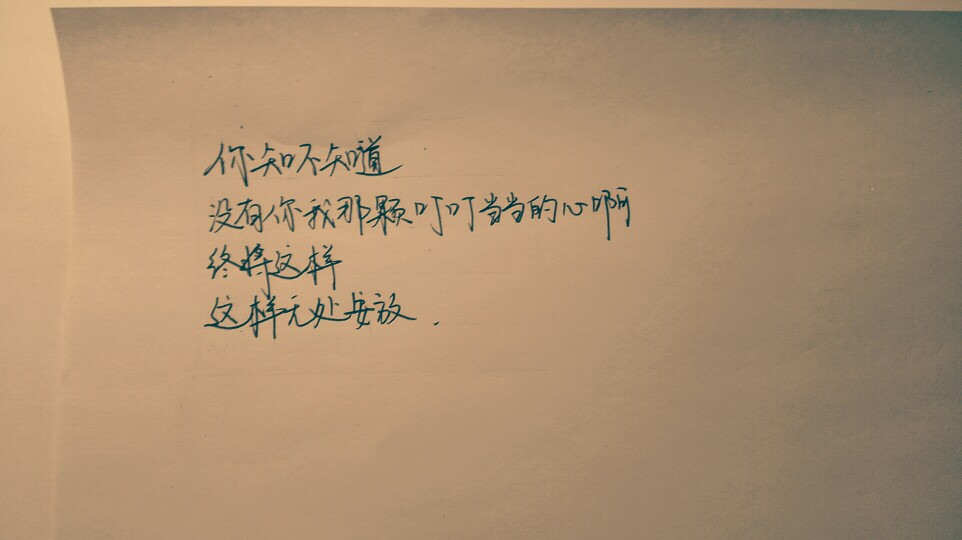 你知不知道
没有你我那颗叮叮当当的心啊
终将这样
这样无处安放.